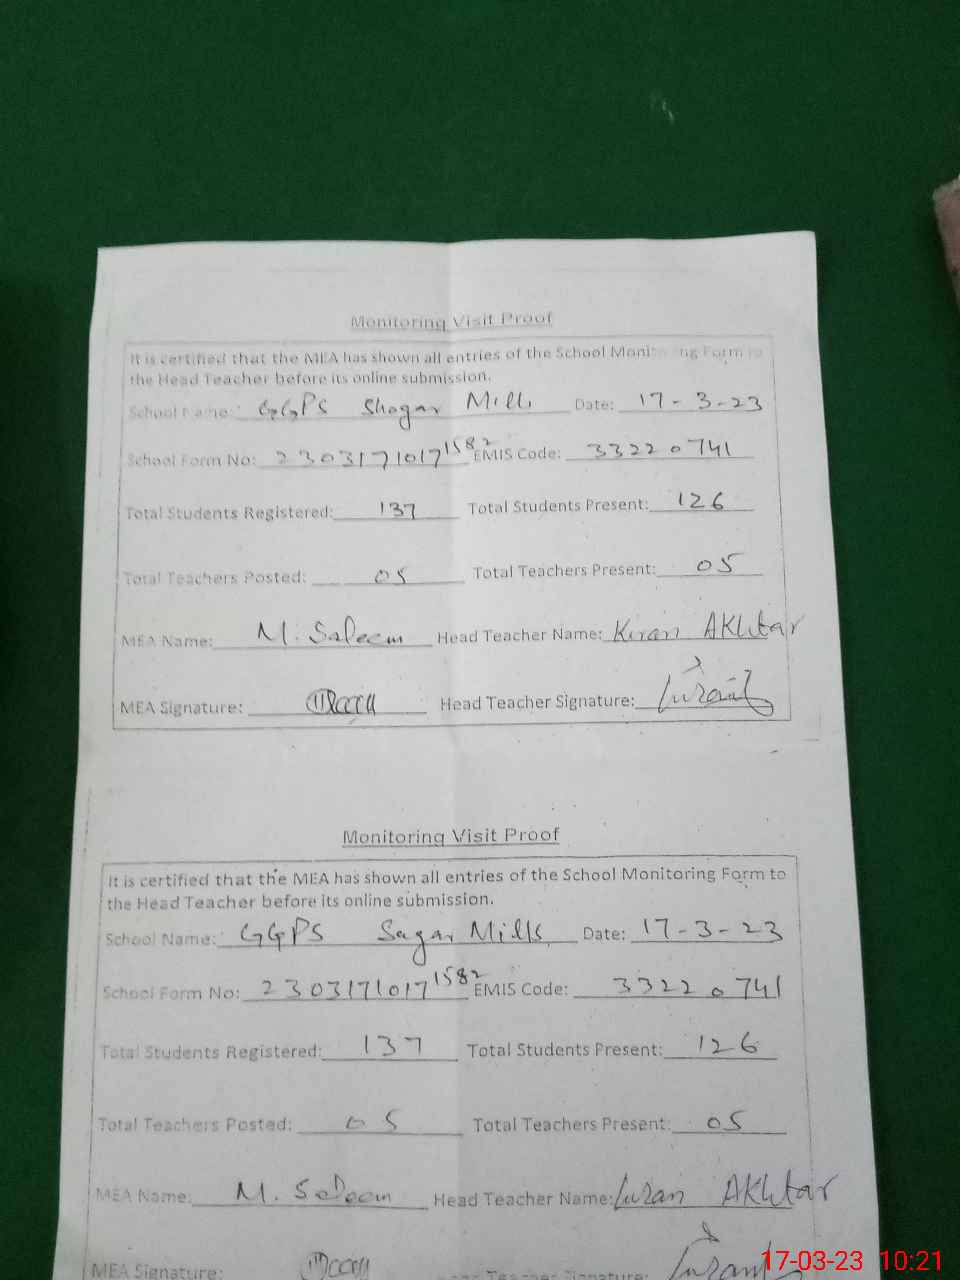 Monitoring Visit Proof
It is certified that the MEA has shown all entries of the School Monitoring Form to
the Head Teacher before its online submission.
School Name: GGPS Shogar Mills Date: 17-3-23
School Form No: 23031710171582 EMIS Code: 33220741
Total Students Registered: 137 Total Students Present: 126
Total Teachers Posted: 05 Total Teachers Present: 05
MEA Name: M. Saleem Head Teacher Name: Kiran AKhtar
MEA Signature: Head Teacher Signature:
Monitoring Visit Proof
It is certified that the MEA has shown all entries of the School Monitoring Form to
the Head Teacher before its online submission.
School Name: GGPS Sagar Mills Date: 17-3-23
School Form No: 23031710171582 EMIS Code: 33220741
Total Students Registered: 137 Total Students Present: 126
Total Teachers Posted: 05 Total Teachers Present: 05
MEA Name: M. Saleem Head Teacher Name: Kiran AKhtar
MEA Signature: Teacher Signature:
17-03-23 10:21